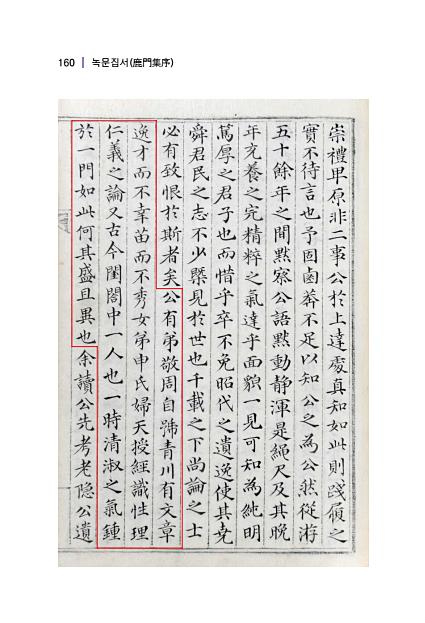 160 | 녹문집서(鹿門集序)
崇禮卑原非二事公於上達處真知如此則踐履之
實不待言也予固鹵莽不足以知公之為公然從游
五十餘年之間默察公語默動靜渾是繩尺及其晚
年充養之完精粹之氣達乎面貌一見可知為純明
篤厚之君子也而惜乎卒不免昭代之遺逸使其堯
舜君民之志不少槩見於世也千載之下尚論之士
必有致恨於斯者矣公有弟敬周自號青川有文章
逸才而不幸苗而不秀女弟申氏婦天授經識性理
仁義之論又古今閨閤中一人也一時清淑之氣鍾
於一門如此何其盛且異也余讀公先考老隐公遺